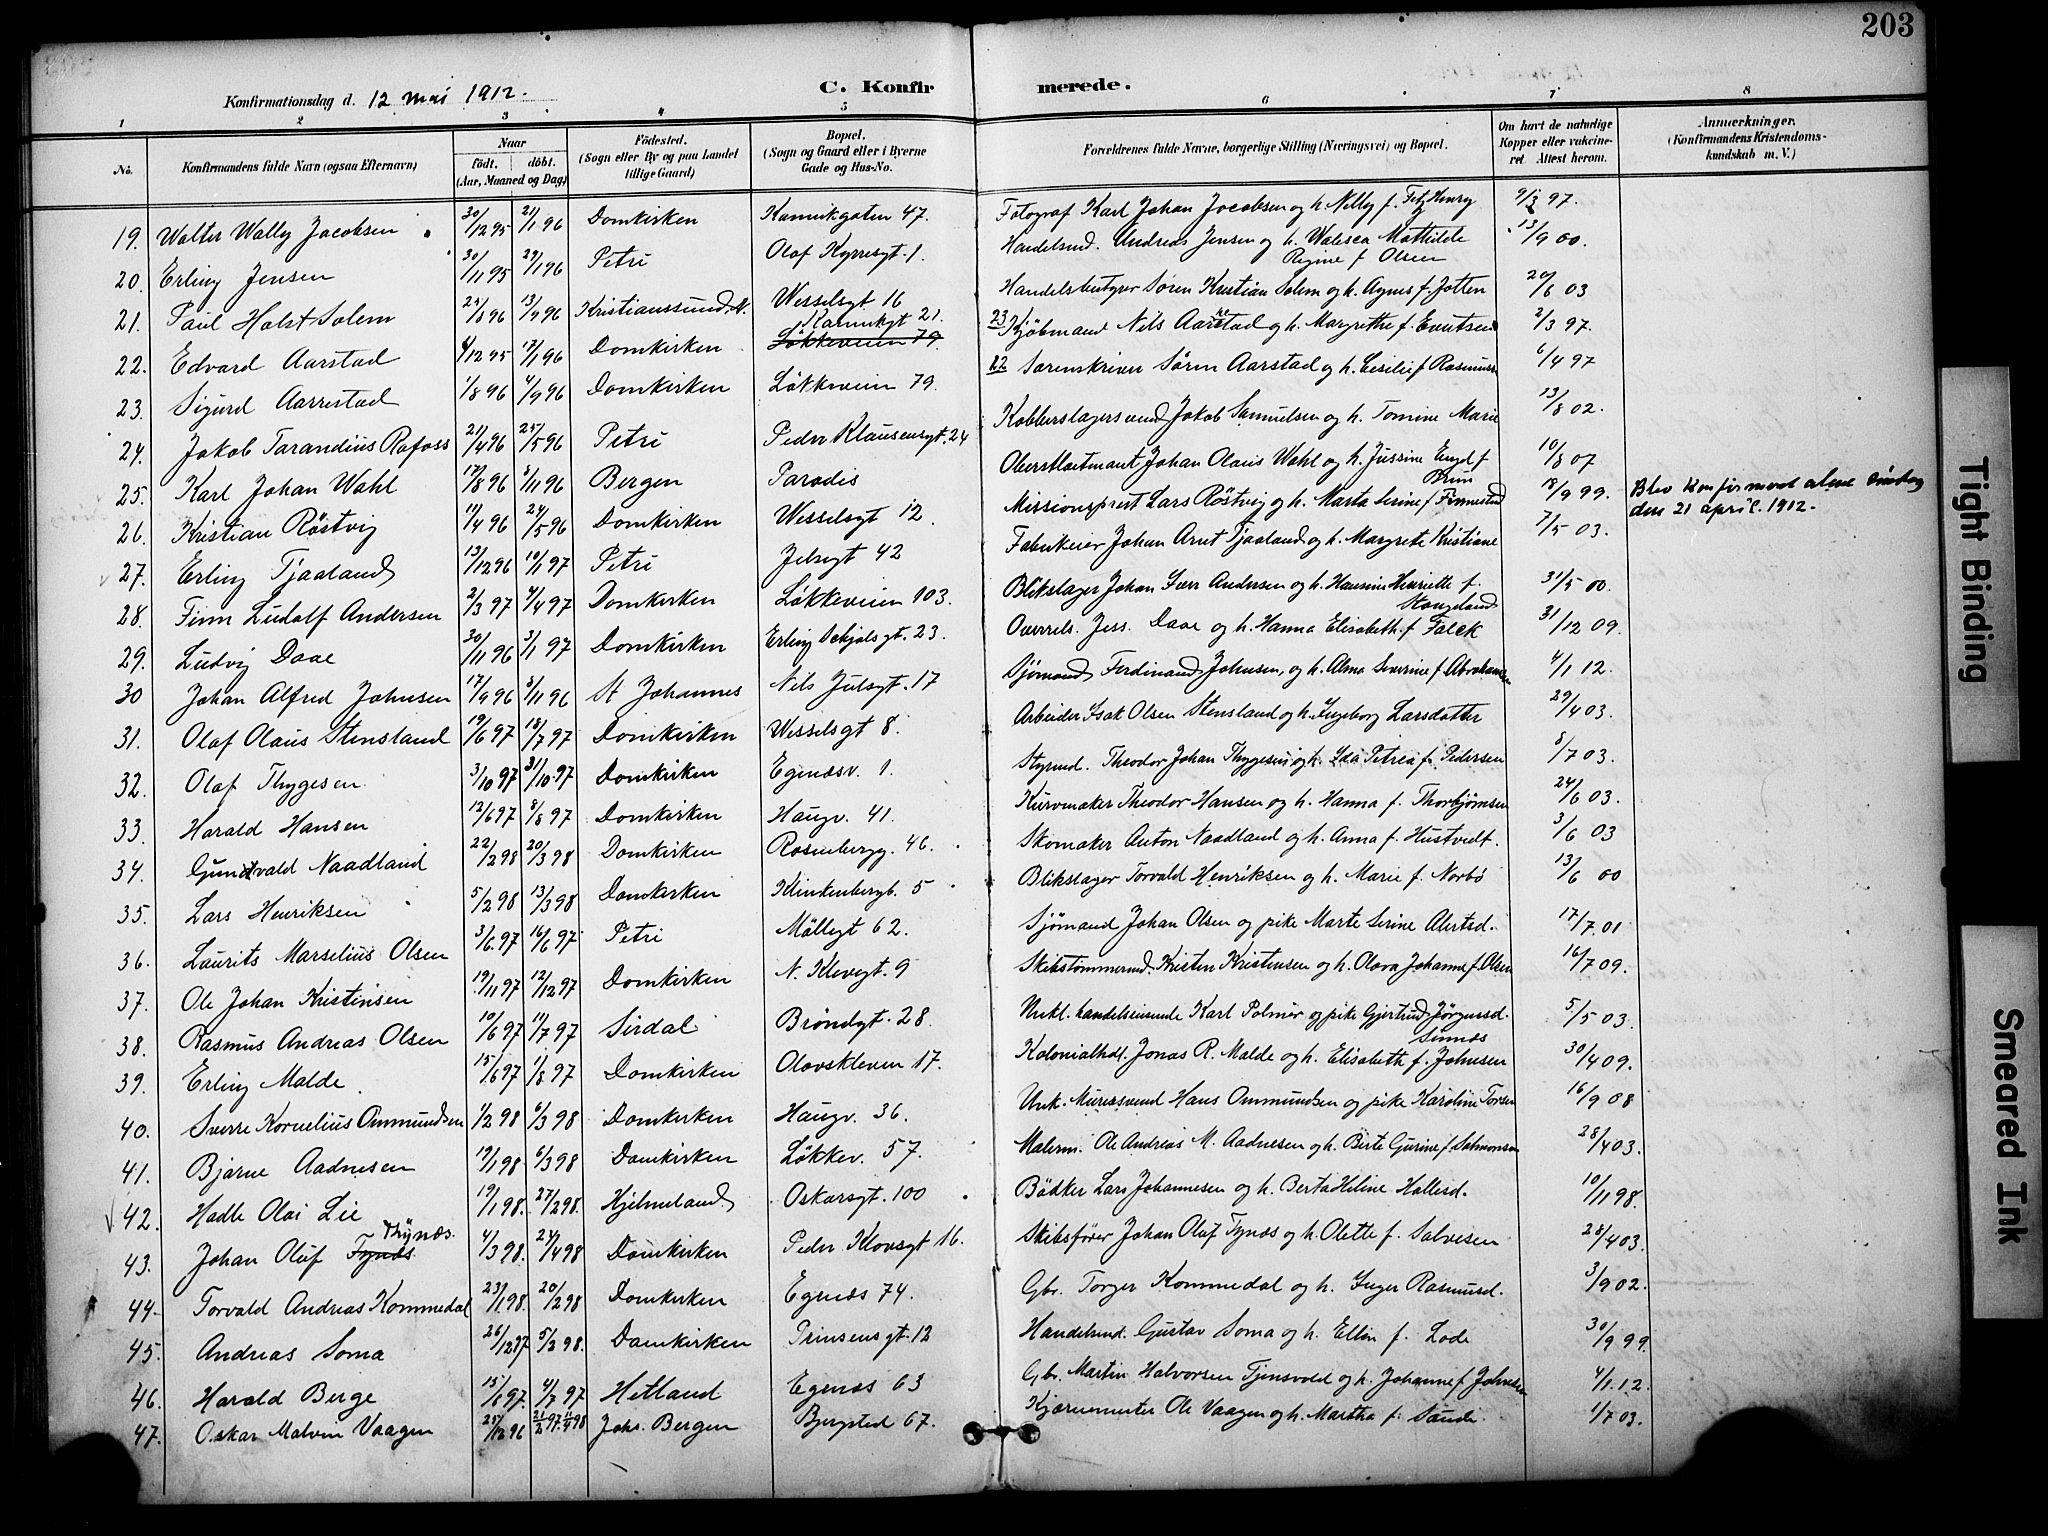 203
Konfirmationsdag d. 12 mai 1912.
C. Konfirmerede.
1 2 3 4 5 6 7 8
No. Konfirmandens fulde Navn (ogsaa Efternavn) Naar födt. döbt. (Aar, Maaned og Dag) Födested. (Sogn eller By og paa Landet tillige Gaard) Bopæl. (Sogn og Gaard eller i Byerne Gade og Hus-No. Forældrenes fulde Navne, borgerlige Stilling (Næringsvei) og Bopæl. Om havt de naturlige Kopper eller vaccineret. Attest herom. Anmærkninger. (Konfirmandens Kristendomskundskab m. V.)
19. Walter Wally Jacobsen 30/12 95 21/1 96 Domkirken Kannikgaten 47. Fotograf Karl Johan Jacobsen og h. Nelly f. Fitz Henry 9/3 97.
20. Erling Jensen 30/11 95 29/1 96 Petri Olaf Kyrresgt. 1. Handelsmd. Andreas Jensen og h. Walesca Mathilde Regine f Olsen 13/9 00.
21. Paul Holst Solem 24/8 96 13/9 96 Kristianssund. N. Wesselsgt 16 Handelsbestyrer Sören Kristian Solem og h. Agnes f. Jotten 20/6 03
22. Edvard Aarstad 4/12 95 17/1 96 Domkirken Kannikgt 21. Løkkeveien 79. 23 Kjöbmand Nils Aarstad og h. Margrethe f. Knutsen 2/3 97.
23. Sigurd Aarrestad 1/8 96 4/9 96 Domkirken Løkkeveien 79. 22 Sorenskriver Sörin Aarstad og h. Cesilie f Rasmuss 6/4 97
24. Jakob Tarandius Rafoss 21/4 96 25/5 96 Petri Peder Klausensgt. 24 Kobberslagersvend Jakob Samuelsen og h. Tomine Marie 13/8 02.
25. Karl Johan Wahl 17/8 96 8/11 96 Bergen Paradis Oberstløitnant Johan Olaus Wahl og h. Jussine Engel f Brun 10/8 07
26. Kristian Röstvig 11/4 96 24/5 96 Domkirken Wesselsgt 12. Missionsprest Lars Röstvig og h. Marta Serine f Finnestad 18/9 99. Blev konfirmeret alene söndag den 21 april 1912.
27. Erling Tjaaland 13/12 96 10/1 97 Petri Jelsgt 42 Fabrikeier Johan Arnt Tjaaland og h. Margrete Kristiane 7/5 03.
28. Finn Ludolf Andersen 2/3 97 4/4 97 Domkirken Løkkeveien 103. Blikslager Johan Sver Andersen og h. Hansine Henriette f. Stangeland 31/5 00.
29. Ludvig Daae 30/11 96 3/1 97 Domkirken Erling Schjalsgt. 23. Overrels. Jess. Daae og h. Hanna Elisabeth f Falck 31/12 09.
30 Johan Alfred Johnsen 17/9 96 8/11 96 St Johannes Nils Julsgt. 17 Sjömand Ferdinand Johnsen, og h. Alma Severine f Abrahamsen 4/1 12.
31. Olaf Olaus Stensland 19/6 97 18/7 97 Domkirken Wesselsgt 8. Arbeider Isak Olsen Stensland og h. Ingeborg Larsdatter 29/4 03.
32. Olaf Thygesen 3/10 97 31/10 97 Domkirken Egenæsv. 1. Styrmd. Theodor Johan Thygesen og h. Ida Petrea f. Pedersen 8/7 03.
33. Harald Hansen 12/6 97 8/8 97 Domkirken Haugv. 41. Kurvmaker Theodor Hansen og h. Hanna f. Thorbjørnsen 24/6 03.
34. Gundvald Naadland 22/2 98 20/3 98 Domkirken Rosenbergg. 46. Skomaker Anton Naadland og h. Anna f. Hustvedt. 3/6 03
35. Lars Henriksen 5/2 98 13/3 98 Domkirken Klinkenbergb. 5 Blikslager Torvald Henriksen og h. Marie f. Norbö 13/6 00
36. Laurits Marselius Olsen 3/6 97 16/6 97 Petri Möllegt 62. Sjömand Johan Olsen og pike Marte Serine Alertsd. 17/7 01
37. Ole Johan Kristensen 19/11 97 12/12 97 Domkirken N. Klevegt. 9 Skibstömmermd. Kristen Kristensen og h. Olava Johanne f. Olsen 16/7 09.
38. Rasmus Andreas Olsen 10/6 97 11/7 97 Sirdal Bröndgt. 28. Unkl. handelsreisende Karl Palmer og pike Gjertrud Jörgensd. Sinnes 5/5 03.
39. Erling Malde. 15/6 97 1/8 97 Domkirken Olavskleven 17. Kolonialhdl. Jonas R. Malde og h. Elisabeth f. Johnsen 30/4 09.
40. Sverre Kornelius Ommundsen 1/2 98 6/3 98 Domkirken Haugv. 36. Unk. Murersvend Hans Ommundsen og pike Karoline Torsen 16/9 08
41. Bjarne Aadnesen 19/1 98. 6/3 98 Domkirken Løkkev. 57. Malerm. Ole Andreas M. Aadnesen og h. Berte Gurine f. Salmonsen 28/4 03.
42. Hadle Olai Lie 19/1 98. 27/2 98. Hjelmeland Oskarsgt. 100 Bödker Lars Johannesen og h. Berta Heline Hallesd. 10/11 98.
43. Johan Oluf Tynæs Thynæs. 4/3 98. 24/4 98 Domkirken Peder Klowsgt 16. Skibsfører Johan Olaf Tynæs og h. Olette f. Salvesen 28/4 03.
44. Torvald Andreas Kommedal 23/1 98. 20/2 98 Domkirken Egenæs 74. Gbr. Torger Kommedal og h. Inger Rasmusd. 3/9 02.
45. Andreas Soma 26/12 97 5/2 98. Domkirken Prinsensgt. 12 Handelsmd. Gustav Soma og h. Ellin f. Lode 30/9 99.
46. Harald Berge 15/6 97. 4/7 97 Hetland Egenæs 63 Gbr. Martin Halvorsen Tjensvold og h. Johanne f Johnsen 4/1 12.
47. Oskar Malvin Vaagen 25/12 96 21/2 97. 11/4 98 Johs. Bergen Bjergsted 67. Kjærnemester Ole Vaagen og h. Martha f. Sande. 1/7 03.
Tight Binding
Smeared Ink